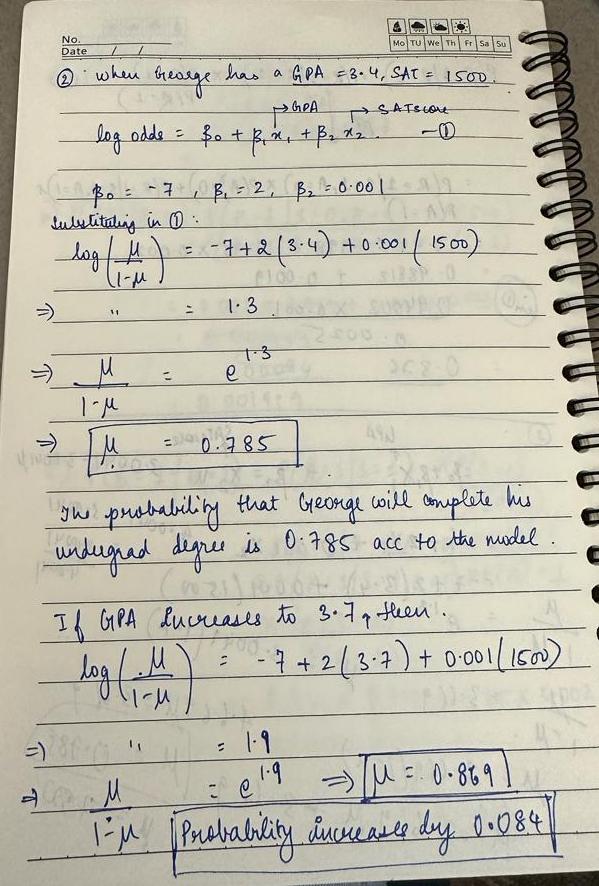 No.
Date / /
Mo TU We Th Fr Sa Su
② when George has a GPA = 3.4, SAT = 1500.
→ GPA → SAT score
log odds = β₀ + β₁x₁ + β₂x₂ . —①
β₀ = -7 , β₁ = 2, β₂ = 0.001
Substituting in ① :
log(μ/1-μ) = -7 + 2(3.4) + 0.001(1500)
⇒ " = 1.3 .
⇒ μ/1-μ = e^1.3
⇒ μ = 0.785
The probability that George will complete his
undergrad degree is 0.785 acc to the model .
If GPA increases to 3.7, then.
log(μ/1-μ) = -7 + 2(3.7) + 0.001(1500)
⇒ " = 1.9
⇒ μ/1-μ = e^1.9 ⇒ μ = 0.869
Probability increases by 0.084